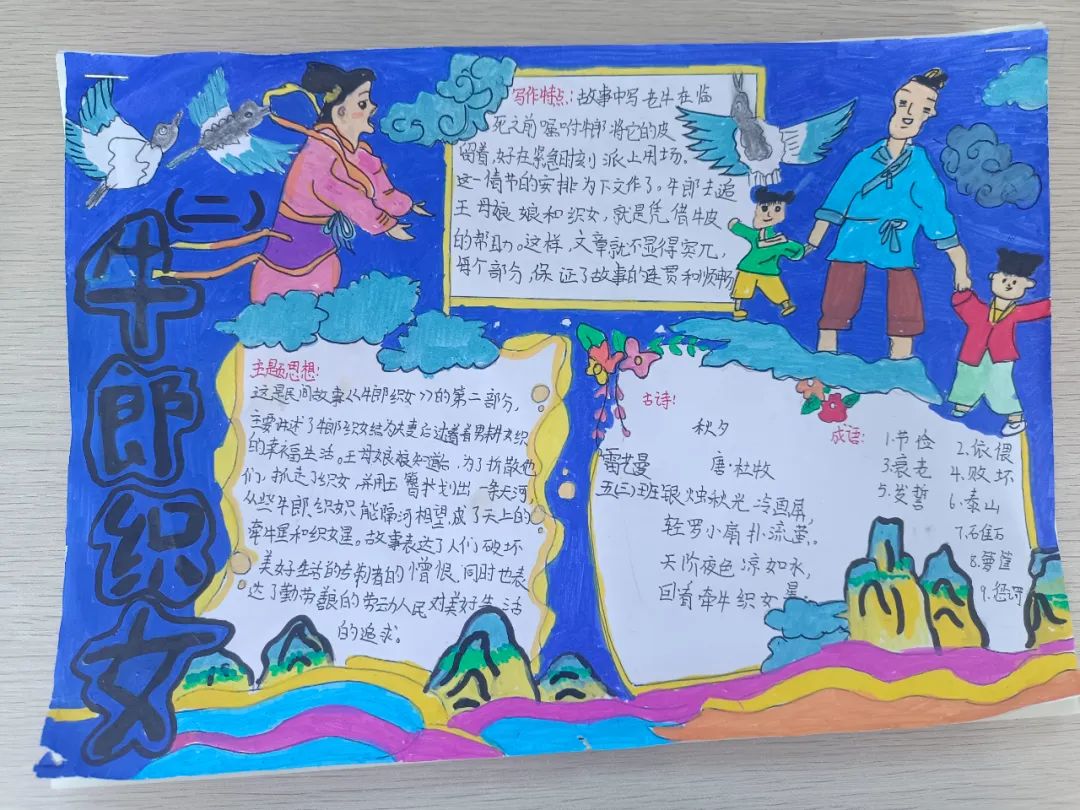 牛郎织女
(二)
写作特点：故事中写老牛在临
死之前嘱咐牛郎将它的皮
留着，好在紧急时刻派上用场。
这一情节的安排为下文作了。牛郎去追
王母娘娘和织女，就是凭借牛皮
的帮助。这样，文章就不显得突兀，
每个部分，保证了故事的连贯和顺畅
主题思想：
这是民间故事《牛郎织女》的第二部分，
主要讲述了牛郎织女结为夫妻后过着男耕女织
的幸福生活。王母娘娘知道后，为了拆散他
们，抓走了织女，并用玉簪划出一条天河，
从些牛郎、织女只能隔河相望，成了天上的
牵牛星和织女星。故事表达了人们破坏
美好生活的专制者的憎恨，同时也表
达了勤劳善良的劳动人民对美好生活
的追求。
古诗：
秋夕
唐·杜牧
五(三)班
银烛秋光冷画屏，
轻罗小扇扑流萤。
天阶夜色凉如水，
回看牵牛织女星。
成语：
1.节俭
2.依偎
3.衰老
4.败坏
5.发誓
6.泰山
7.石崖石
8.箩筐
9.惩罚